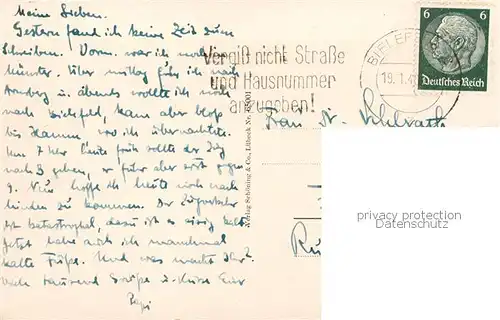 Meine Lieben.
Gestern fand ich keine Zeit zum
Schreiben. Vorm. war ich noch
Münster. Über mittag fuhr ich nach
Arnsberg u. abends wollte ich noch
nach Bielefeld, kam aber bloß
bis Hamm, wo ich übernachtete.
Um 7 Uhr heute früh sollte der Zug
nach B. gehen, er fuhr aber erst gegen
9. Nun hoffe ich heute noch nach
Minden zu kommen. Der Zugverkehr
ist katastrophal, dazu ist es eisig kalt.
Jetzt habe auch ich manchmal
kalte Füße. Und was macht Ihr?
Noch tausend Grüße u. Küsse Euer
Papi
Vergiß nicht Straße
und Hausnummer
anzugeben!
BIELEF
19.1.4
6 6
Deutsches Reich
Verlag Schöning & Co., Lübeck Nr.
Frau
privacy protection
Datenschutz